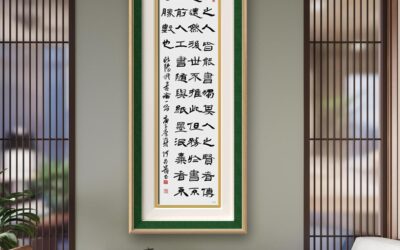 之人皆能書獨其人之賢者傳
遠然後世不推此但務於書不
前人工書隨與紙墨泯棄者不
勝數也